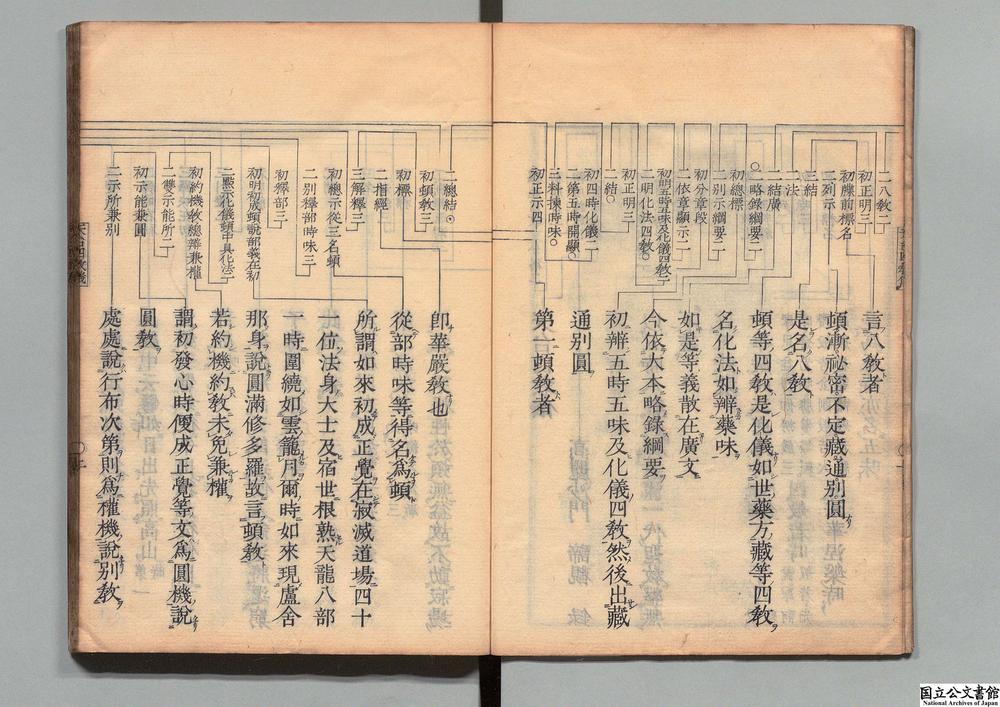 二八教二
初正明三
初牒前標名
二列示
三結
二法
二結廣
○二略錄綱要二
初總標
二別示綱要二
初分章段
二依章顯示二
初明五時五味及化儀四教二
二明化法四教○
初正明三
二結○
初四時化儀二
二第五時開顯○
三料揀時味○
初正示四
言八教者
頓漸祕密不定藏通別圓
是名八教
頓等四教是化儀如世藥方藏等四教
名化法如辨藥味
如是等義散在廣文
今依大本略錄綱要
初辨五時五味及化儀四教然後出藏
通別圓
第一頓教者
二總結○
初頓教三
初標
二指經
三解釋三
初總示從三名頓
二別釋部時味三
初釋部三
初明初成頓說部義在初
二點示化儀頓中具化法二
初約機教總辨兼權
二雙示能所二
初示能兼圓
二示所兼別
卽華嚴教也
從部時味等得名爲頓
所謂如來初成正覺在寂滅道場四十
一位法身大士及宿世根熟天龍八部
一時圍繞如雲籠月爾時如來現盧舍
那身說圓滿修多羅故言頓教
若約機約教未免兼權
謂初發心時便成正覺等文爲圓機說
圓教
處處說行布次第則爲權機說別教
国立公文書館
National Archives of Japan